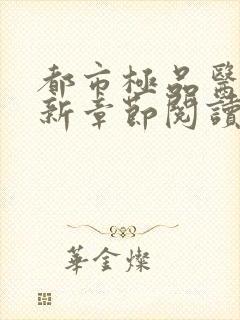 都市極品醫
新章節閱讀
華金燦